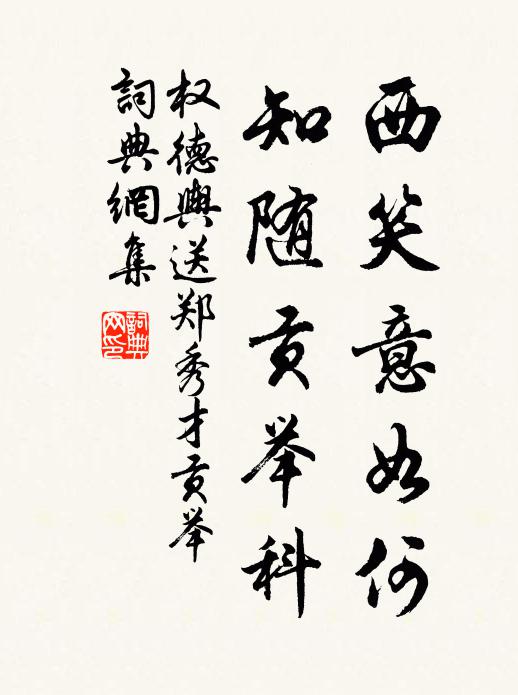 西笑意如何
知随贡举科
权德舆送郑秀才贡举
詞典網集
詞典网印